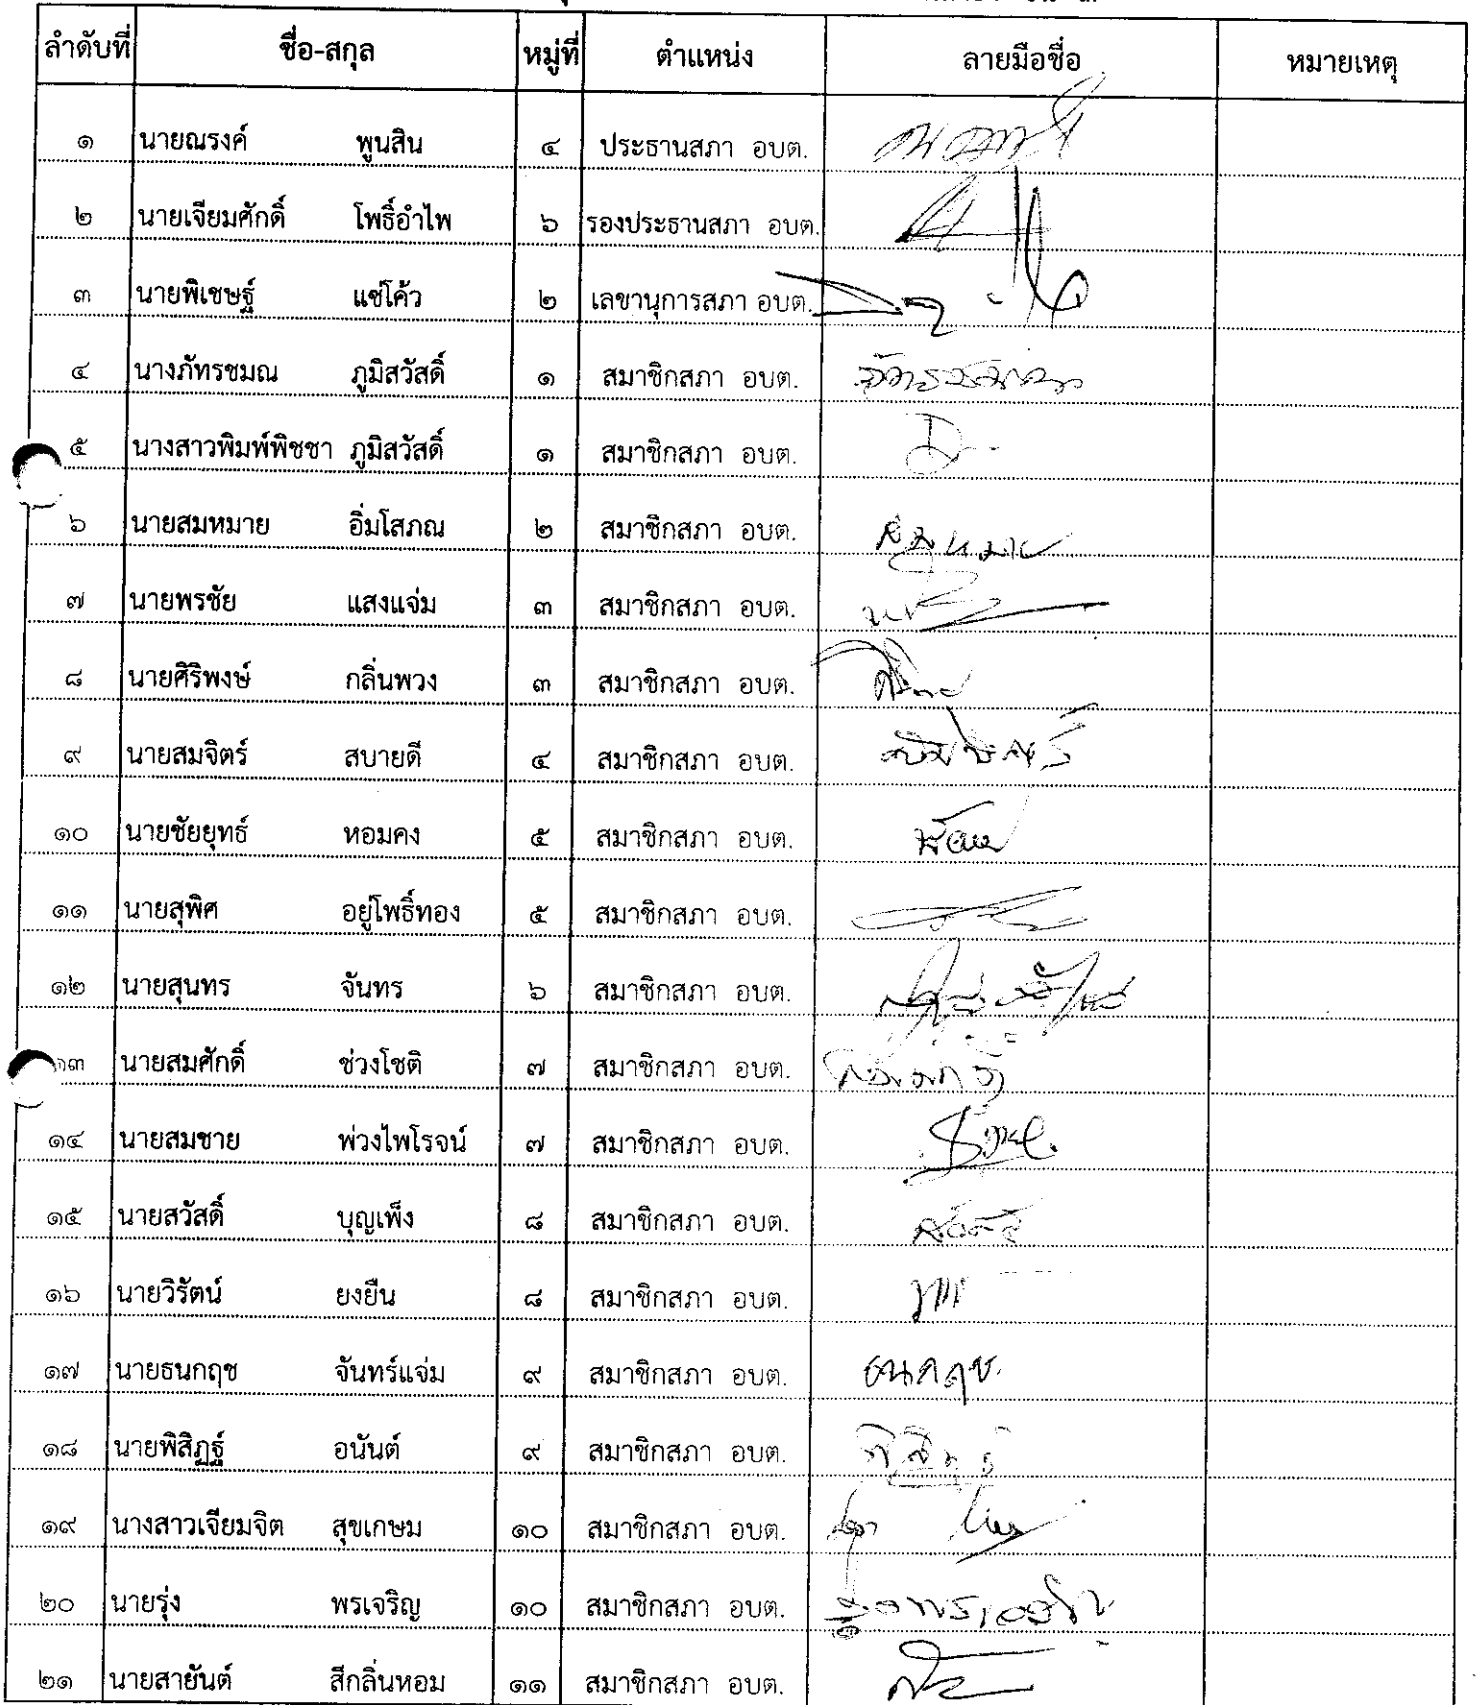 ลำดับที่ ชื่อ-สกุล หมู่ที่ ตำแหน่ง ลายมือชื่อ หมายเหตุ
๑ นายณรงค์ พูนสิน ๔ ประธานสภา อบต.
๒ นายเจียมศักดิ์ โพธิ์อำไพ ๖ รองประธานสภา อบต.
๓ นายพิเชษฐ์ แซ่โค้ว ๒ เลขานุการสภา อบต.
๔ นางภัทรชมณ ภูมิสวัสดิ์ ๑ สมาชิกสภา อบต.
๕ นางสาวพิมพ์พิชชา ภูมิสวัสดิ์ ๑ สมาชิกสภา อบต.
๖ นายสมหมาย อิ่มโสภณ ๒ สมาชิกสภา อบต. สมหมาย
๗ นายพรชัย แสงแจ่ม ๓ สมาชิกสภา อบต.
๘ นายศิริพงษ์ กลิ่นพวง ๓ สมาชิกสภา อบต.
๙ นายสมจิตร์ สบายดี ๔ สมาชิกสภา อบต.
๑๐ นายชัยยุทธ์ หอมคง ๕ สมาชิกสภา อบต.
๑๑ นายสุพิศ อยู่โพธิ์ทอง ๕ สมาชิกสภา อบต.
๑๒ นายสุนทร จันทร ๖ สมาชิกสภา อบต.
๑๓ นายสมศักดิ์ ช่วงโชติ ๗ สมาชิกสภา อบต.
๑๔ นายสมชาย พ่วงไพโรจน์ ๗ สมาชิกสภา อบต.
๑๕ นายสวัสดิ์ บุญเพ็ง ๘ สมาชิกสภา อบต.
๑๖ นายวิรัตน์ ยงยืน ๘ สมาชิกสภา อบต.
๑๗ นายธนกฤช จันทร์แจ่ม ๙ สมาชิกสภา อบต. ธนกฤช
๑๘ นายพิสิฏฐ์ อนันต์ ๙ สมาชิกสภา อบต.
๑๙ นางสาวเจียมจิต สุขเกษม ๑๐ สมาชิกสภา อบต.
๒๐ นายรุ่ง พรเจริญ ๑๐ สมาชิกสภา อบต.
๒๑ นายสายันต์ สีกลิ่นหอม ๑๑ สมาชิกสภา อบต.